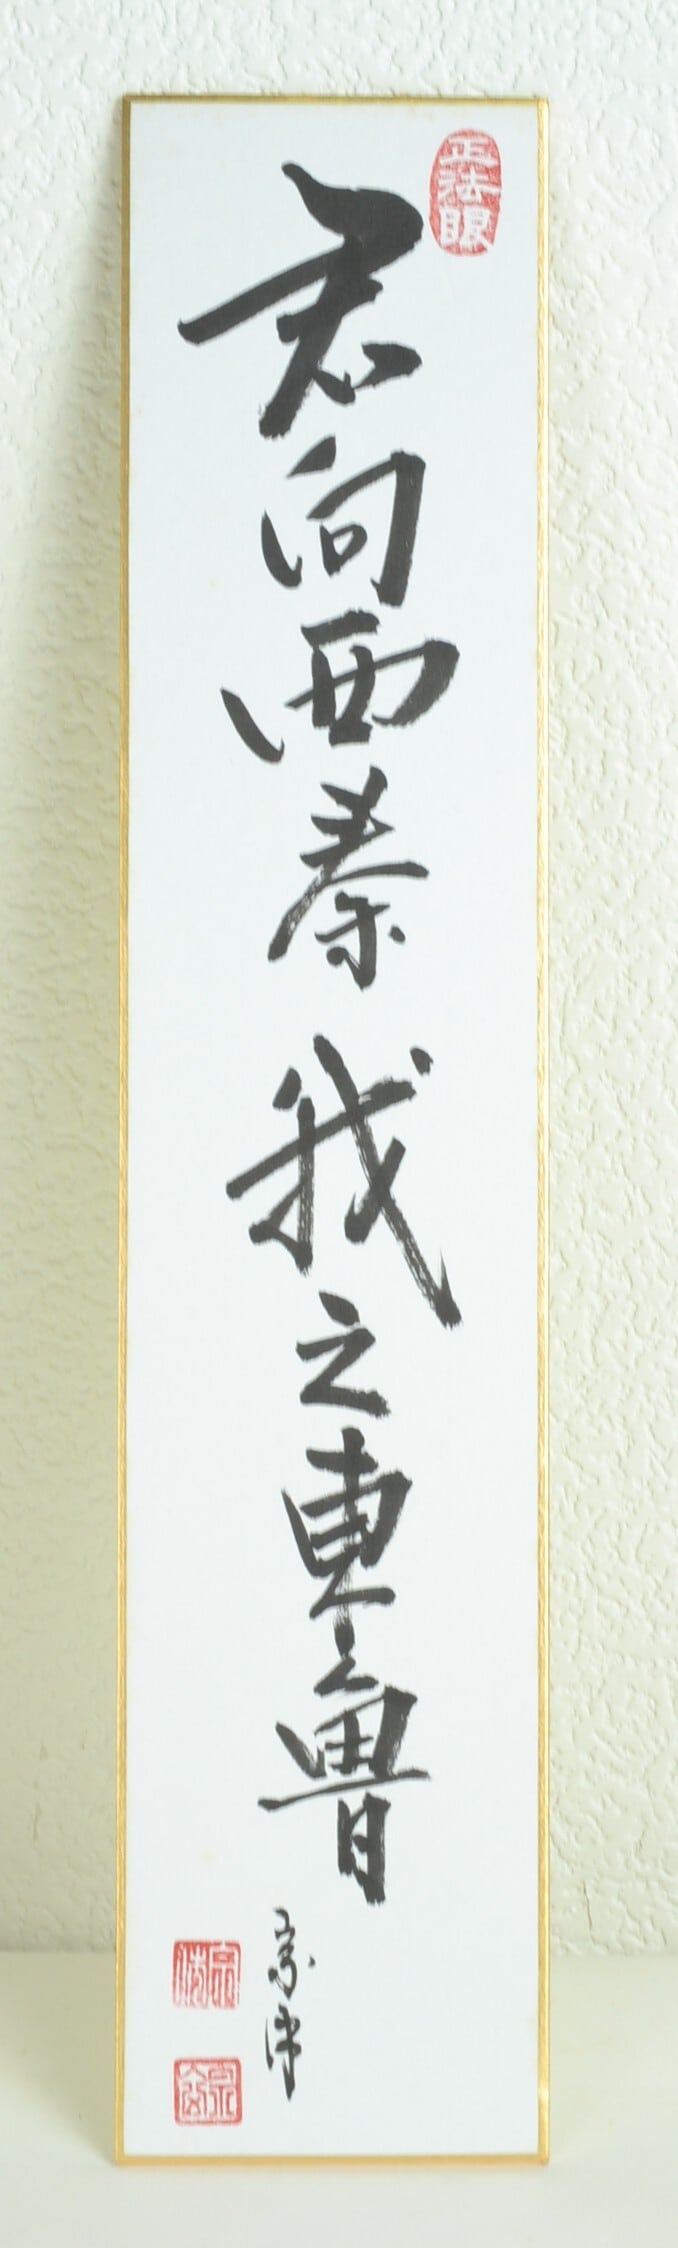 正法眼
君向西秦 我之東魯